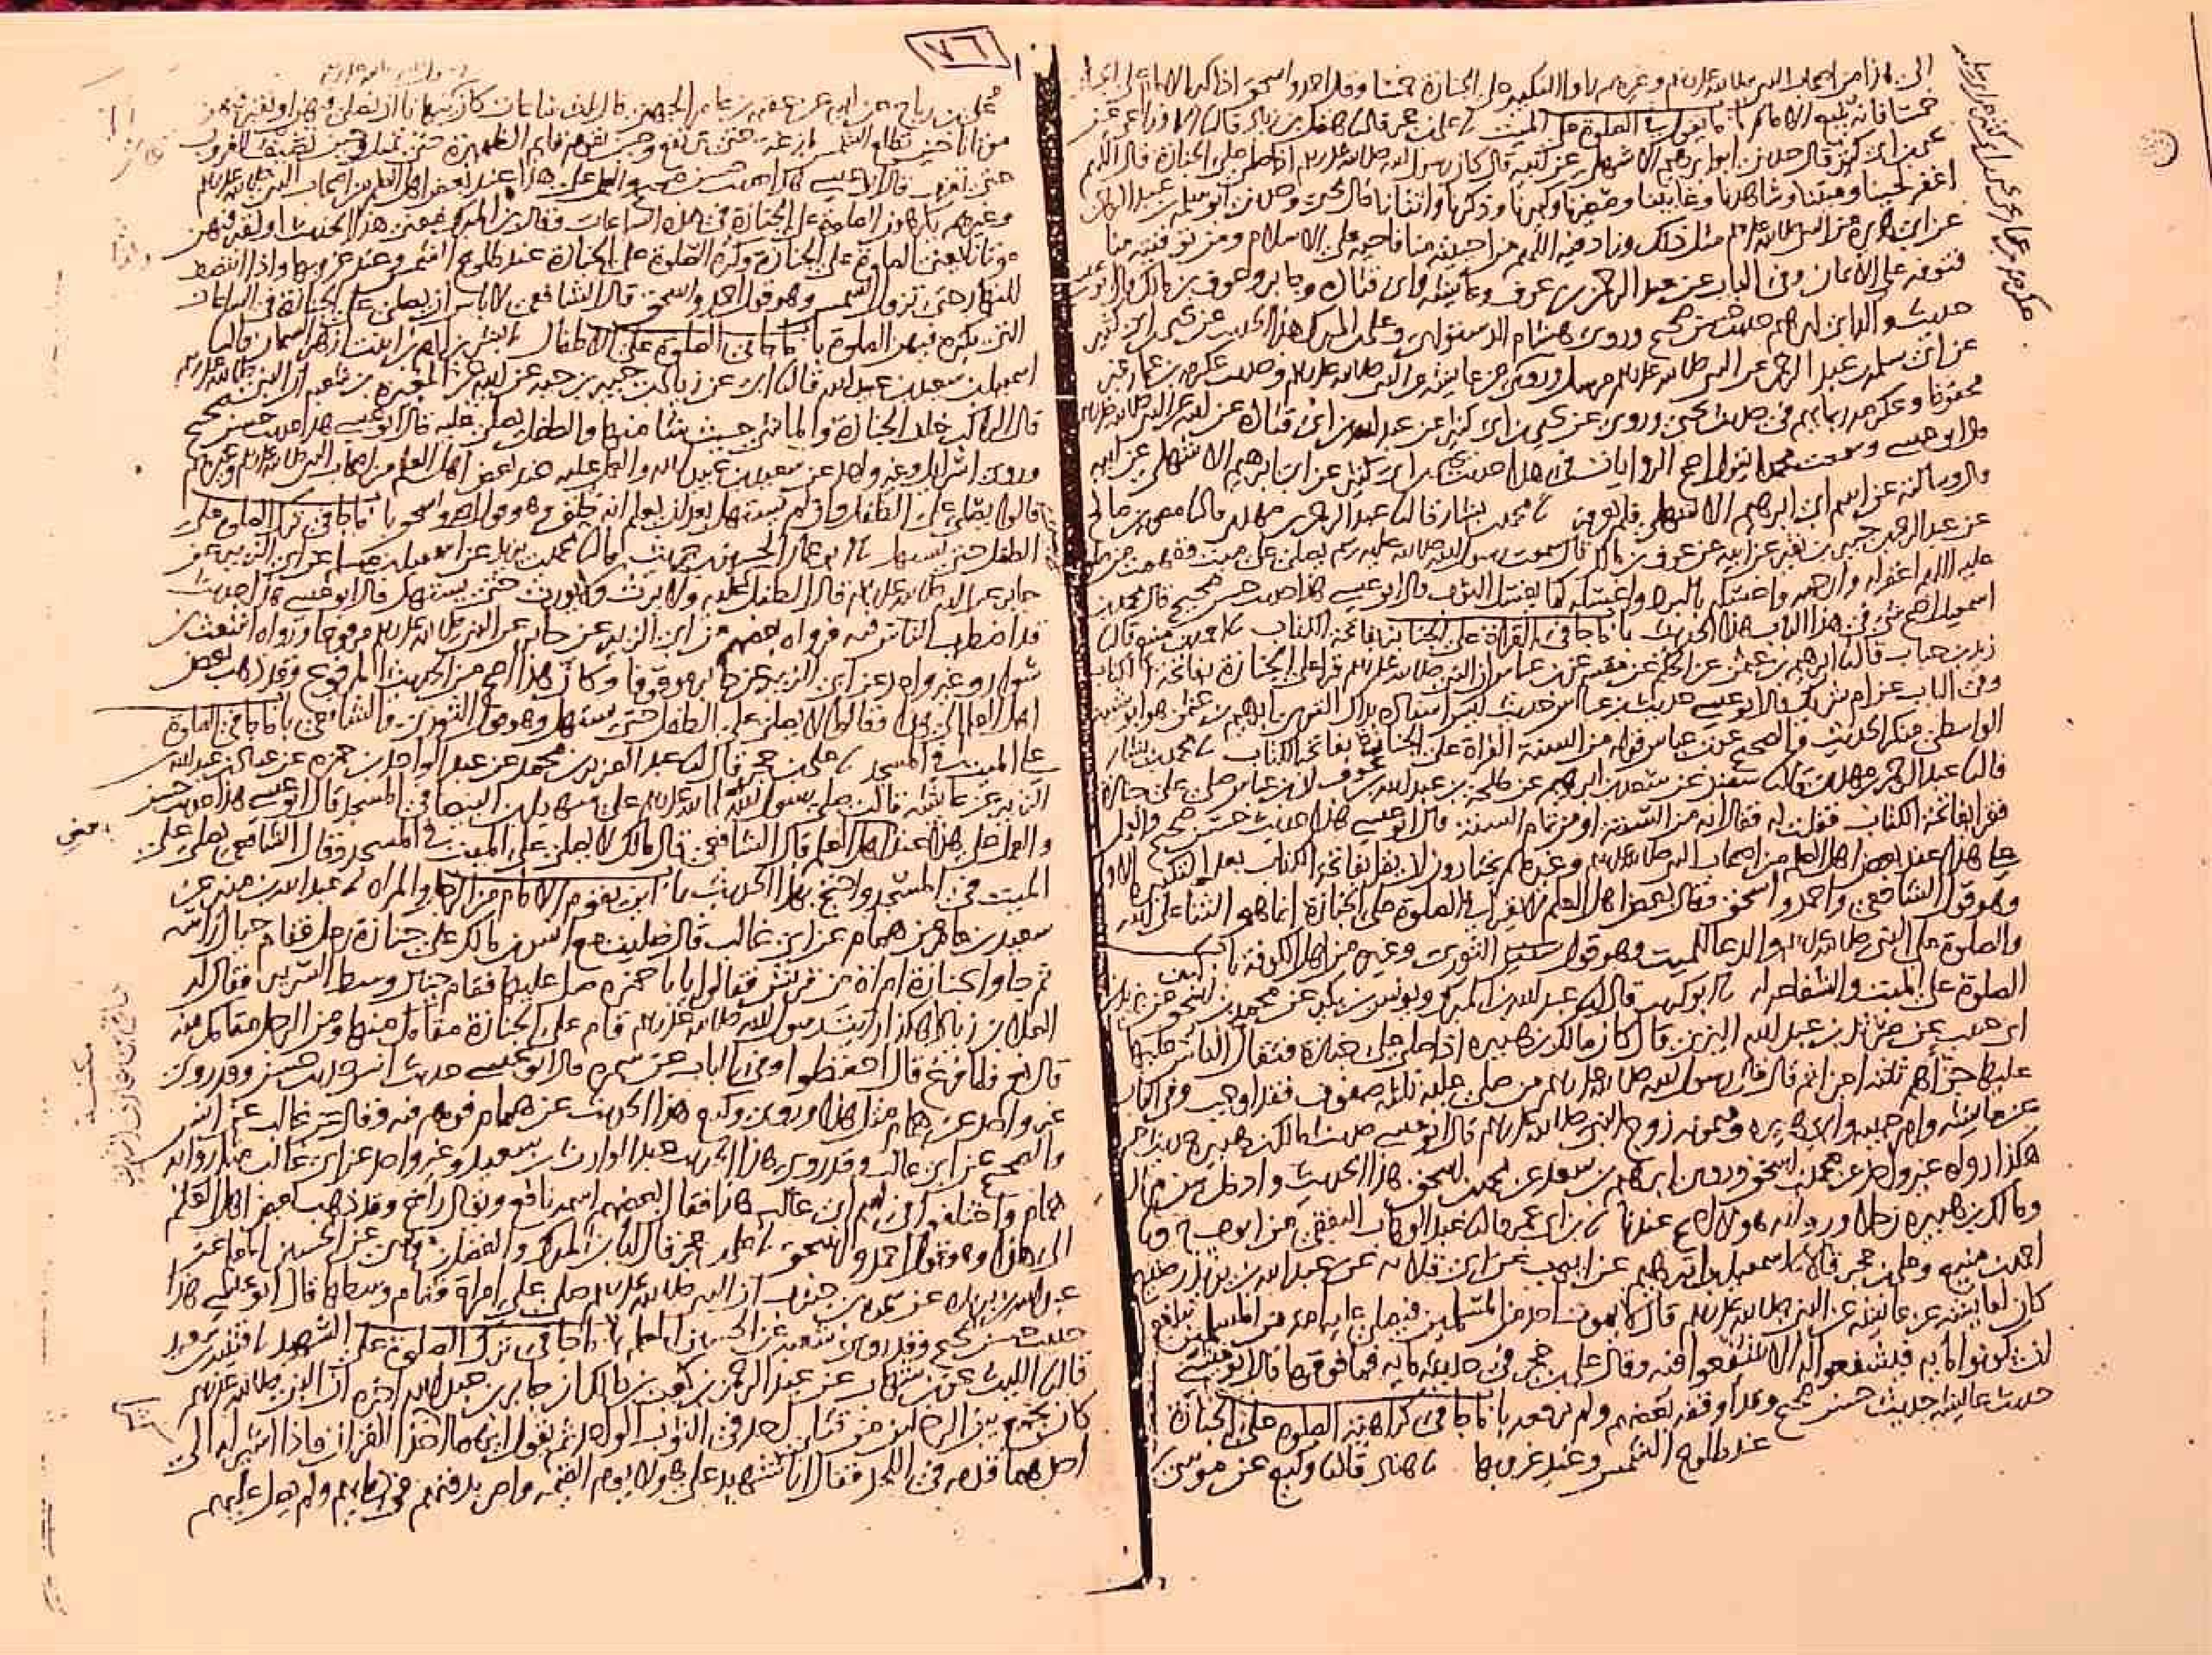 ٧٦
الى هذا من اصحاب النبي صلى الله عليه وسلم وغيرهم راوا التكبير على الجنازة خمسا وقال احمد واسحق اذا كبر الامام على الجنازة
خمسا فانه يتبع الامام باب ما يقول في الصلوة على الميت علي بن حجر قال انا هقل بن زياد قال انا الاوزاعي عن
يحيى بن ابي كثير قال حدثني ابو ابراهيم الاشهلي عن ابيه قال كان رسول الله صلى الله عليه وسلم اذا صلى على الجنازة قال اللهم
اغفر لحينا وميتنا وشاهدنا وغائبنا وصغيرنا وكبيرنا وذكرنا وانثانا قال يحيى وحدثني ابو سلمة بن عبد الرحمن
عن ابي هريرة عن النبي صلى الله عليه وسلم مثل ذلك وزاد فيه اللهم من احييته منا فاحيه على الاسلام ومن توفيته منا
فتوفه على الايمان وفي الباب عن عبد الرحمن بن عوف وعائشة وابي قتادة وجابر وعوف بن مالك قال ابو عيسى
حديث والد ابي ابراهيم حديث حسن صحيح وروى هشام الدستوائي وعلي بن المبارك هذا الحديث عن يحيى بن ابي كثير
عن ابي سلمة بن عبد الرحمن عن النبي صلى الله عليه وسلم مرسلا وروى عكرمة بن عمار عن
محفوظ وعكرمة ربما يهم في حديث يحيى وروي عن يحيى بن ابي كثير عن عبد الله بن ابي قتادة عن ابيه عن النبي صلى الله عليه وسلم
قال ابو عيسى وسمعت محمدا يقول اصح الروايات في هذا حديث يحيى بن ابي كثير عن ابي ابراهيم الاشهلي عن ابيه
قال وسالته عن اسم ابي ابراهيم الاشهلي فلم يعرفه محمد بن بشار قال انا عبد الرحمن بن مهدي قال انا معوية بن صالح
عن عبد الرحمن بن جبير بن نفير عن ابيه عن عوف بن مالك قال سمعت رسول الله صلى الله عليه وسلم يصلي على ميت ففهمت من صلاته
عليه اللهم اغفر له وارحمه واغسله بالبرد واغسله كما يغسل الثوب قال ابو عيسى هذا حديث حسن صحيح قال محمد بن
اسمعيل اصح شي في هذا الباب هذا الحديث باب ما جا في القراة على الجنازة بفاتحة الكتاب احمد بن منيع قال انا
زيد بن حباب قال انا ابراهيم بن عثمن عن الحكم عن مقسم عن ابن عباس ان النبي صلى الله عليه وسلم قرا على الجنازة بفاتحة الكتاب
وفي الباب عن ام شريك قال ابو عيسى حديث ابن عباس حديث ليس اسناده بذاك القوي ابراهيم بن عثمن هو ابو شيبة
الواسطي منكر الحديث والصحيح عن ابن عباس قوله من السنة القراة على الجنازة بفاتحة الكتاب محمد بن بشار
قال انا عبد الرحمن بن مهدي قال انا سفين عن سعد بن ابراهيم عن طلحة بن عبد الله بن عوف ان ابن عباس صلى على جنازة
فقرا بفاتحة الكتاب فقلت له فقال انه من السنة او من تمام السنة قال ابو عيسى هذا حديث حسن صحيح والعمل
على هذا عند بعض اهل العلم من اصحاب النبي صلى الله عليه وسلم وغيرهم يختارون ان يقرا بفاتحة الكتاب بعد التكبيرة الاولى
وهو قول الشافعي واحمد واسحق وقال بعض اهل العلم لا يقرا في الصلوة على الجنازة انما هو الثناء على الله
والصلوة على النبي صلى الله عليه وسلم والدعا للميت وهو قول سفين الثوري وغيره من اهل الكوفة باب كيف
الصلوة على الميت والشفاعة له ابو كريب قال انا عبد الله بن المبارك ويونس بن بكير عن محمد بن اسحق عن يزيد بن
ابي حبيب عن مرثد بن عبد الله اليزني قال كان مالك بن هبيرة اذا صلى على جنازة فتقال الناس عليها
عليها جزاهم ثلثة اجزا ثم قال قال رسول الله صلى الله عليه وسلم من صلى عليه ثلثة صفوف فقد اوجب وفي الباب
عن عائشة وام حبيبة وابي هريرة وميمونة زوج النبي صلى الله عليه وسلم قال ابو عيسى حديث مالك بن هبيرة حديث حسن
هكذا رواه غير واحد عن محمد بن اسحق وروى ابراهيم بن سعد عن محمد بن اسحق هذا الحديث وادخل بين مرثد
ومالك بن هبيرة رجلا ورواية هولاء اصح عندنا ابن ابي عمر قال انا عبد الوهاب الثقفي عن ايوب ح وانا
احمد بن منيع وعلي بن حجر قالا انا اسمعيل بن ابراهيم عن ايوب عن ابي قلابة عن عبد الله بن يزيد رضيع
كان لعائشة عن عائشة عن النبي صلى الله عليه وسلم قال لا يموت احد من المسلمين فيصلي عليه امة من المسلمين يبلغوا
ان يكونوا مائة فيشفعوا له الا شفعوا فيه وقال علي بن حجر في حديثه مائة فما فوقها قال ابو عيسى
حديث عائشة حديث حسن صحيح وقد اوقفه بعضهم ولم يرفعه باب ما جا في كراهية الصلوة على الجنازة
عند طلوع الشمس وعند غروبها هناد قال انا وكيع عن موسى بن
علي بن رباح عن ابيه عن عقبة بن عامر الجهني قال ثلث ساعات كان ينهانا ان نصلي فيهن او نقبر فيهن
موتانا حين تطلع الشمس بازغة حتى ترتفع وحين يقوم قايم الظهيرة حتى تميل وحين تضيف للغروب
حتى تغرب قال ابو عيسى هذا حديث حسن صحيح والعمل على هذا عند بعض اهل العلم من اصحاب النبي صلى الله عليه وسلم
وغيرهم يكرهون الصلوة على الجنازة في هذه الساعات وقال ابن المبارك معنى هذا الحديث او نقبر فيهن
موتانا يعني الصلوة على الجنازة وكره الصلوة على الجنازة عند طلوع الشمس وعند غروبها واذا انتصف
النهار حتى تزول الشمس وهو قول احمد واسحق قال الشافعي لا باس ان يصلى على الجنازة في الساعات
التي يكره فيهن الصلوة باب ما جا في الصلوة على الاطفال بشر بن ادم بن بنت ازهر السمان قال انا
اسمعيل بن سعيد بن عبيد الله قال انا ابي عن زياد بن جبير بن حية عن ابيه عن المغيرة بن شعبة ان النبي صلى الله عليه وسلم
قال الراكب خلف الجنازة والماشي حيث شا منها والطفل يصلى عليه قال ابو عيسى هذا حديث حسن صحيح
وروى اسرائيل وغير واحد عن سعيد بن عبيد الله والعمل عليه عند بعض اهل العلم من اصحاب النبي صلى الله عليه وسلم وغيرهم
قالوا يصلى على الطفل وان لم يستهل بعد ان يعلم انه خلق وهو قول احمد واسحق باب ما جا في ترك الصلوة على
الطفل حتى يستهل ابو عمار الحسين بن حريث قال انا محمد بن يزيد عن اسمعيل بن مسلم عن ابي الزبير عن
جابر عن النبي صلى الله عليه وسلم قال الطفل لا يصلى عليه ولا يرث ولا يورث حتى يستهل قال ابو عيسى هذا حديث
قد اضطرب الناس فيه فرواه بعضهم عن ابي الزبير عن جابر عن النبي صلى الله عليه وسلم مرفوعا ورواه اشعث بن
سوار وغير واحد عن ابي الزبير عن جابر موقوفا وكان هذا اصح من الحديث المرفوع وقد ذهب بعض
اهل العلم الى هذا وقالوا لا يصلى على الطفل حتى يستهل وهو قول الثوري والشافعي باب ما جا في الصلوة
على الميت في المسجد علي بن حجر قال انا عبد العزيز بن محمد عن عبد الواحد بن حمزة عن عباد بن عبد الله
بن الزبير عن عائشة قالت صلى رسول الله صلى الله عليه وسلم على سهيل بن البيضا في المسجد قال ابو عيسى هذا حديث حسن
والعمل على هذا عند بعض اهل العلم قال الشافعي قال مالك لا يصلى على الميت في المسجد وقال الشافعي يصلى على
الميت في المسجد واحتج بهذا الحديث باب اين يقوم الامام من الرجل والمراة عبد الله بن منير عن
سعيد بن عامر عن همام عن ابي غالب قال صليت مع انس بن مالك على جنازة رجل فقام حيال راسه
ثم جاوا بجنازة امراة من قريش فقالوا يا با حمزة صل عليها فقام حيال وسط السرير فقال له
العلاء بن زياد هكذا رايت رسول الله صلى الله عليه وسلم قام على الجنازة مقامك منها ومن الرجل مقامك منه
قال نعم فلما فرغ قال احفظوا وفي الباب عن سمرة قال ابو عيسى حديث انس حديث حسن وقد روى
غير واحد عن همام مثل هذا وروى وكيع هذا الحديث عن همام فوهم فيه فقال عن غالب عن انس
والصحيح عن ابي غالب وقد روى هذا الحديث عبد الوارث بن سعيد وغير واحد عن ابي غالب مثل رواية
همام واختلفوا في اسم ابي غالب هذا فقال بعضهم اسمه نافع ويقال رافع وقد ذهب بعض اهل العلم
الى هذا وهو قول احمد واسحق علي بن حجر قال انا ابن المبارك والفضل بن موسى عن الحسين المعلم عن
عبد الله بن بريدة عن سمرة بن جندب ان النبي صلى الله عليه وسلم صلى على امراة فقام وسطها قال ابو عيسى هذا
حديث حسن صحيح وقد روى شعبة عن الحسين المعلم باب ما جا في ترك الصلوة على الشهيد قتيبة بن سعيد
قال انا الليث عن ابن شهاب عن عبد الرحمن بن كعب بن مالك ان جابر بن عبد الله اخبره ان النبي صلى الله عليه وسلم
كان يجمع بين الرجلين من قتلى احد في الثوب الواحد ثم يقول ايهما اكثر اخذا للقران فاذا اشير له الى
احدهما قدمه في اللحد فقال انا شهيد على هولاء يوم القيمة وامر بدفنهم في دمايهم ولم يصل عليهم